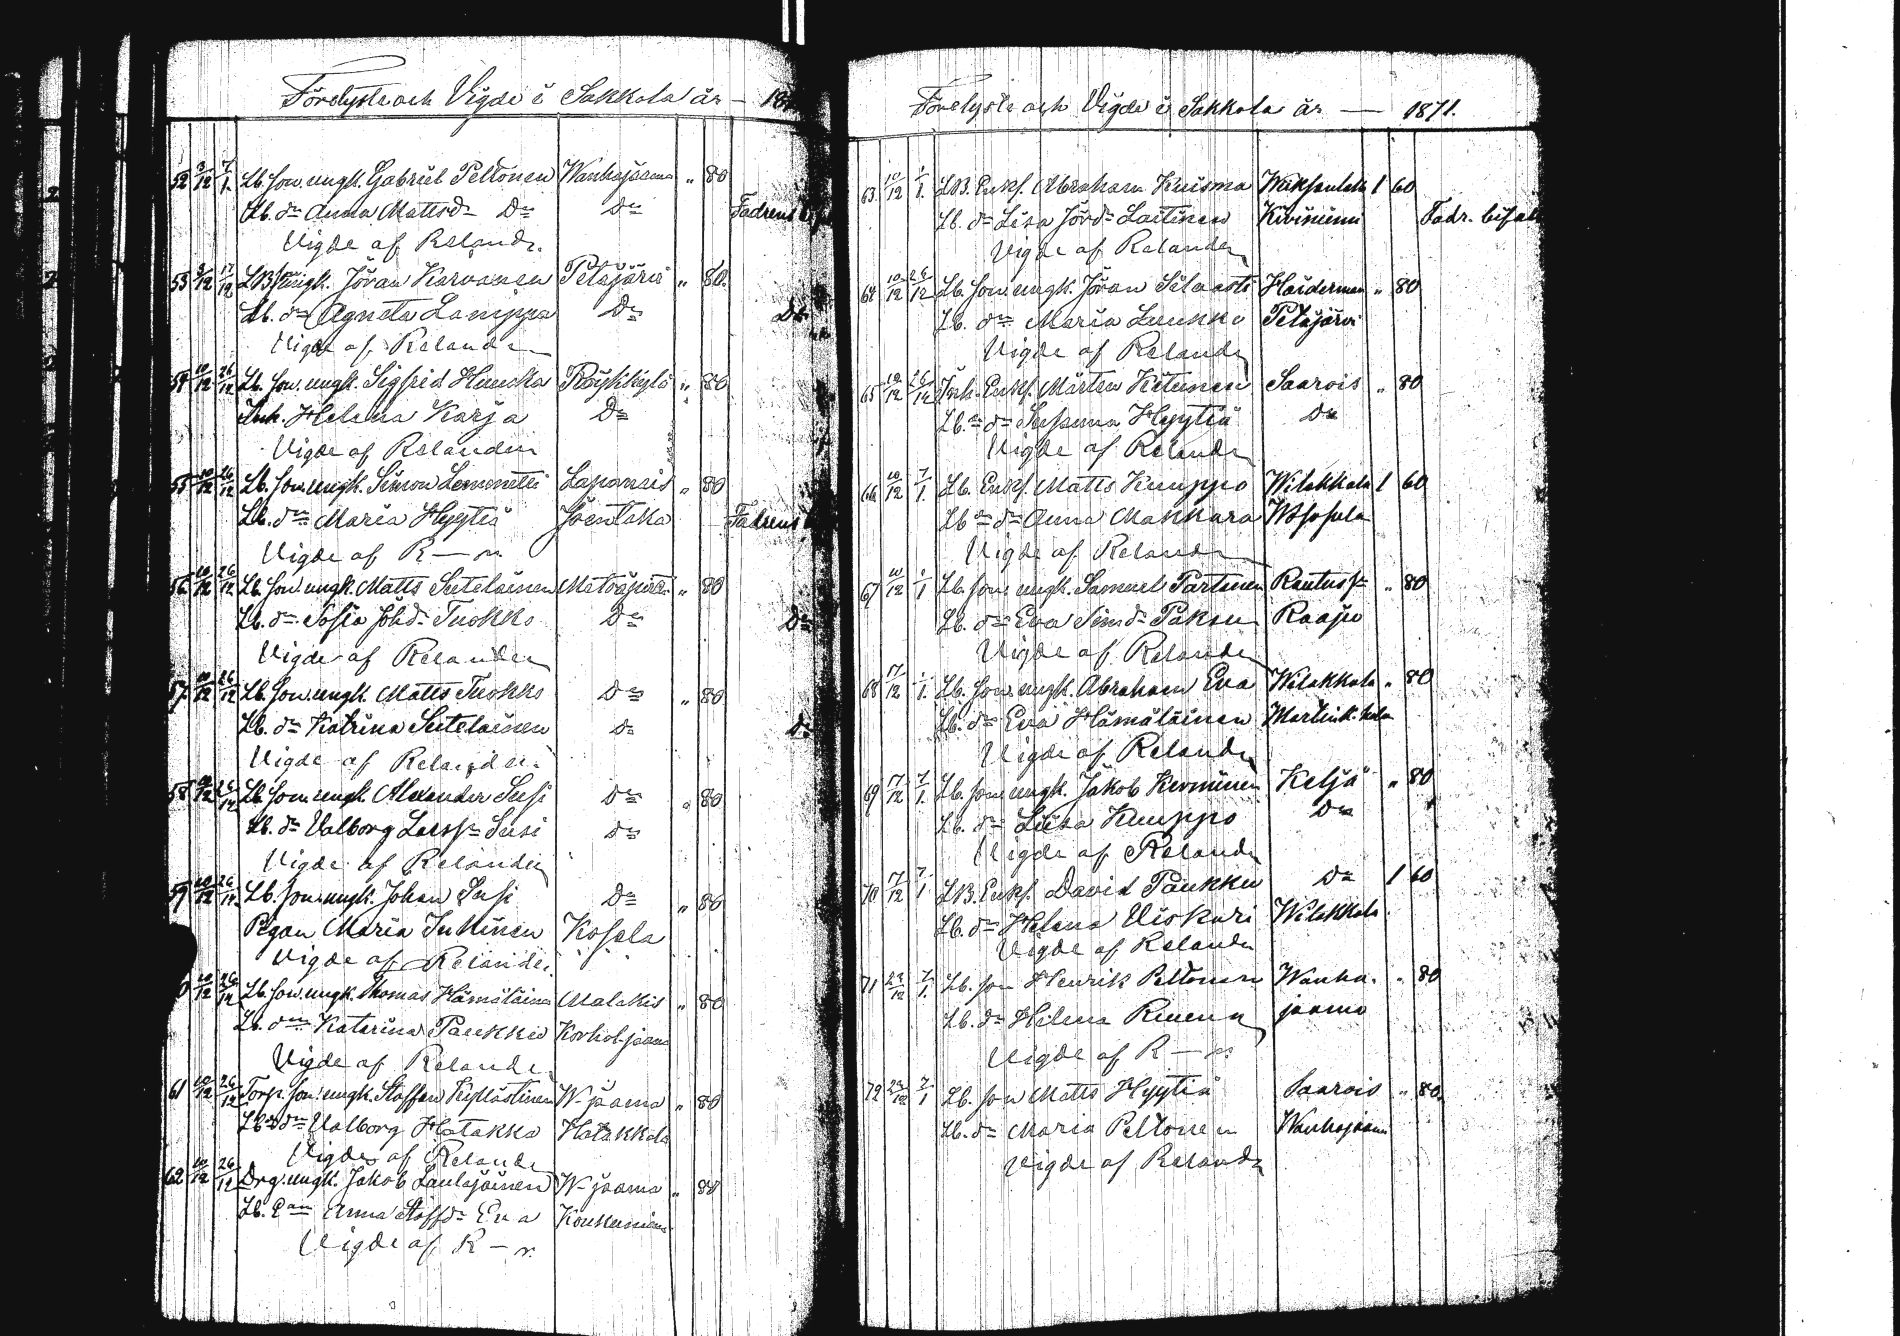 Förelyste och Vigde i Sakkola år — 18
52 3/12 7/1. Lb. son. ungk. Gabriel Peltonen Wanhajaama „ 80
Lb. dr Anna Mattsdr Do Do Fadrens
Vigde af Relander.
53 3/12 17/12 ungk. Jöran Karvanen Petäjärvi „ 80.
Lb. dr Agneta Lamppa Do Do
Vigde af Relander
54 10/12 26/12 Lb. son. ungk. Sigfrid Huuska Röykkylä „ 80
Inh. Helena Karja Do
Vigde af Relander
55 10/12 26/12 Lb. son. ungk. Simon Lemmetti Lapanais „ 80
Lb. dr Maria Hyytiä Joentaka Fadrens
Vigde af R—n
56 10/12 26/12 Lb. son ungk. Matts Suteläinen „ 80
Lb. dr Sofia Johdr Tuokko Do Do
Vigde af Relander
57 10/12 26/12 Lb. son. ungk. Matts Tuokko Do „ 80
Lb. dr Katrina Suteläinen Do Do
Vigde af Relander.
58 10/12 26/12 Lb. son. ungk. Alexander Susi Do „ 80
Lb. dr Valborg Susi Do
Vigde af Relander
59 10/12 26/12 Lb. son. ungk. Johan Susi Do „ 80
Pgan Maria Juhinen Kosela
Vigde af Relander.
10/12 26/12 Lb. son. ungk. Thomas Hämäläinen Malakis „ 80
Lb. dr Katarina Paukku Korholjaama
Vigde af Relander.
61 10/12 26/12 Torp. son. ungk. Staffan Kiflästinen W-jaama „ 80
Lb. dr Valborg Hatakka Hatakkala
Vigde af Relander
62 10/12 26/12 Drg. ungk. Jakob Laulajainen W-jaama „ 80
Lb. Anna Staffdr Eva
Vigde af R—r.
Förelyste och Vigde i Sakkola år — 1871.
63 10/12 1/1. LB. Enkf. Abraham Kuisma 1 60
Lb. dr Lisa Jördr Laitinen Kiviniemi Fadr. bifall
Vigde af Relander
64 10/12 26/12 Lb. son. ungk. Jöran Silvasti Haiderman „ 80
Lb. dr Maria Luukko Petäjärvi
Vigde af Relander
65 10/12 26/12 Inh. Enkf. Mårten Kitunen Saarois „ 80
Lb. dr Susanna Hyytiä Do
Vigde af Relander
66 10/12 7/1. Lb. Enkf. Matts Kuuppo Wilakkala 1 60
Lb. dr Anna Makkara
Vigde af Relander
67 10/12 1/1 Lb. son. ungk. Samuel Partinen Rautus „ 80
Lb. dr Eva Simdr Paksu Raajio
Vigde af Relander
68 17/12 1/1. Lb. son. ungk. Abraham Eva Wilakkala „ 80
Lb. dr Eva Hämäläinen
Vigde af Relander
69 17/12 7/1. Lb. son. ungk. Jakob Kerminen Keljä „ 80
Lb. dr Liisa Kuuppo Do
Vigde af Relander
70 17/12 7/1 LB. Enkf. David Paukku Do 1 60
Lb. dr Helena Viskari Wilakkala.
Vigde af Relander
71 23/12 7/1. Lb. son Henrik Peltonen Wanha- „ 80
Lb. dr Helena jaama
Vigde af R—n
72 23/12 7/1 Lb. son Matts Hyytiä Saarois „ 80.
Lb. dr Maria Peltonen Wanhajaama
Vigde af Relander